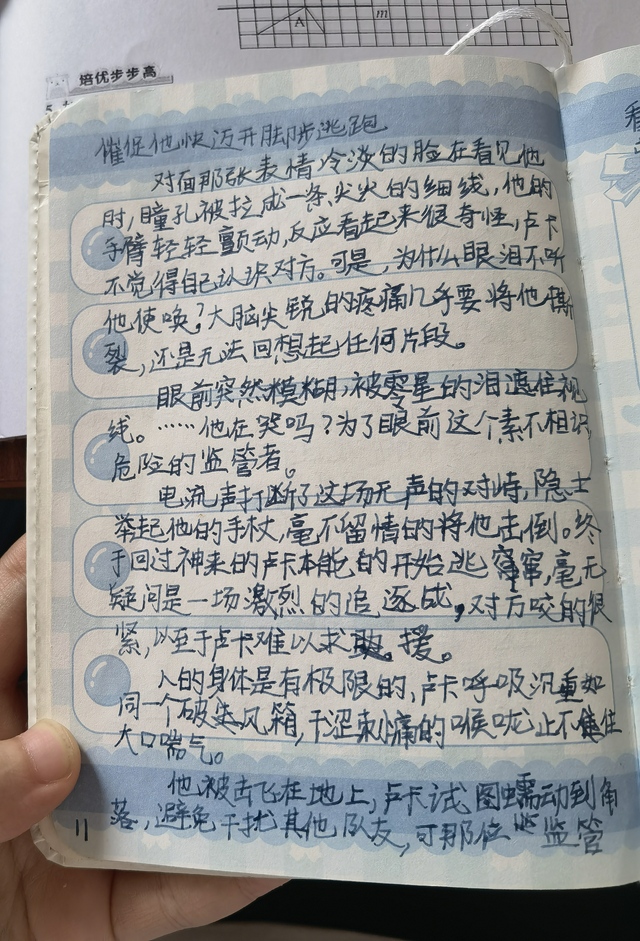 A
m
培优步步高
5.
催促他快迈开脚步逃跑
对面那张表情冷淡的脸在看见他
时,瞳孔被拉成一条尖尖的细线,他的
手臂轻轻颤动,反应看起来很奇怪,卢卡
不觉得自己认识对方。可是,为什么眼泪不听
他使唤?大脑尖锐的疼痛几乎要将他撕
裂,还是无法回想起任何片段。
眼前突然模糊,被零星的泪遮住视
线。……他在哭吗?为了眼前这个素不相识
危险的监管者。
电流声打断了这场无声的对峙,隐士
举起他的手杖,毫不留情的将他击倒。终
于回过神来的卢卡本能的开始逃窜,毫无
疑问是一场激烈的追逐战,对方咬的很
紧,以至于卢卡难以求援。
人的身体是有极限的,卢卡呼吸沉重如
同一个破烂风箱,干涩刺痛的喉咙止不住
大口喘气。
他被击飞在地上,卢卡试图蠕动到角
落,避免干扰其他队友,可那位监管
11